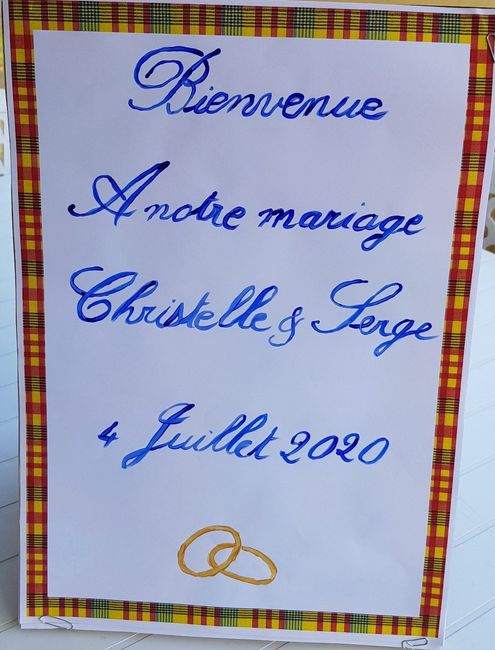 Bienvenue
A notre mariage
Christelle & Serge
4 Juillet 2020